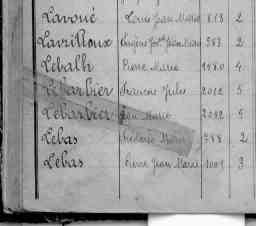 Lavoué Louis Jean Marie 813 2
Lavrilloux Eugène Jph Jean Marie 983 2
Lebalh Pierre Marie 1980 4
Lebarbier Francois Jules 2012 5
Lebarbier Jean Marie 2092 5
Lebas Frédéric 788 2
Lebas Pierre Jean Marie 1001 3